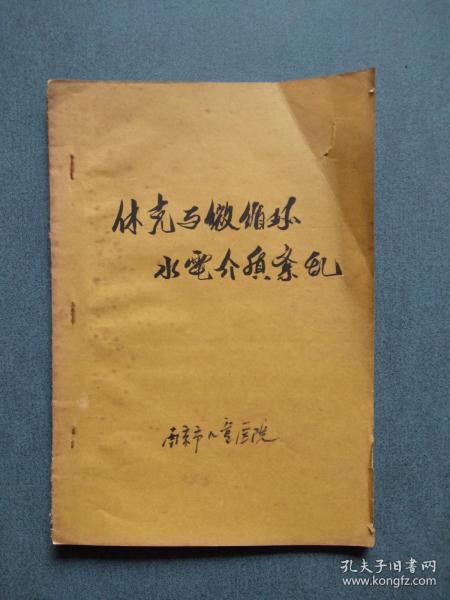 休克与微循环
水電介质紊乱
南京市儿童医院
孔夫子旧书网
www.kongfz.com